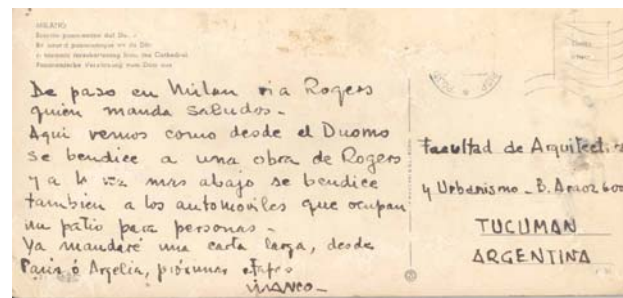 MILANO
De paso en Milan via Rogers
quien manda saludos -
Aqui vemos como desde el Duomo
se bendice a una obra de Rogers
y a la vez mas abajo se bendice
tambien a los automoviles que ocupan
un patio para personas -
Ya mandaré una carta larga, desde
Paris ó Argelia, próximas etapas
MARCO -
Facultad de Arquitectura
y Urbanismo - B. Araoz 600
TUCUMAN
ARGENTINA